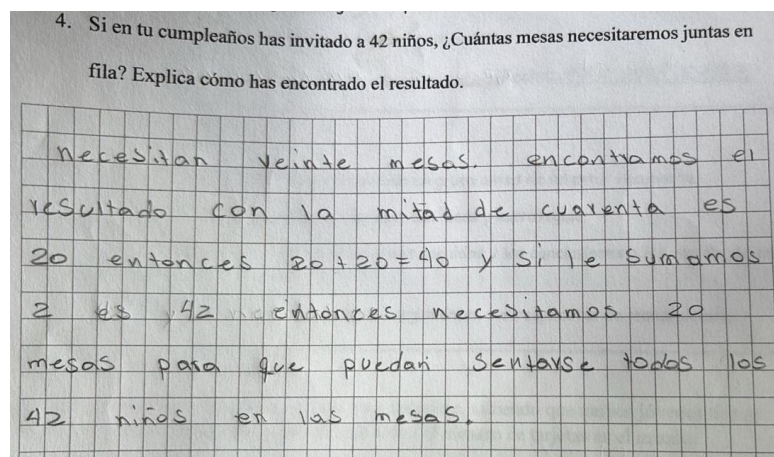 4. Si en tu cumpleaños has invitado a 42 niños, ¿Cuántas mesas necesitaremos juntas en
fila? Explica cómo has encontrado el resultado.
necesitan veinte mesas. encontramos el
resultado con la mitad de cuarenta es
20 entonces 20 + 20 = 40 y si le sumamos
2 es 42 entonces necesitamos 20
mesas para que puedan sentarse todos los
42 niños en las mesas.